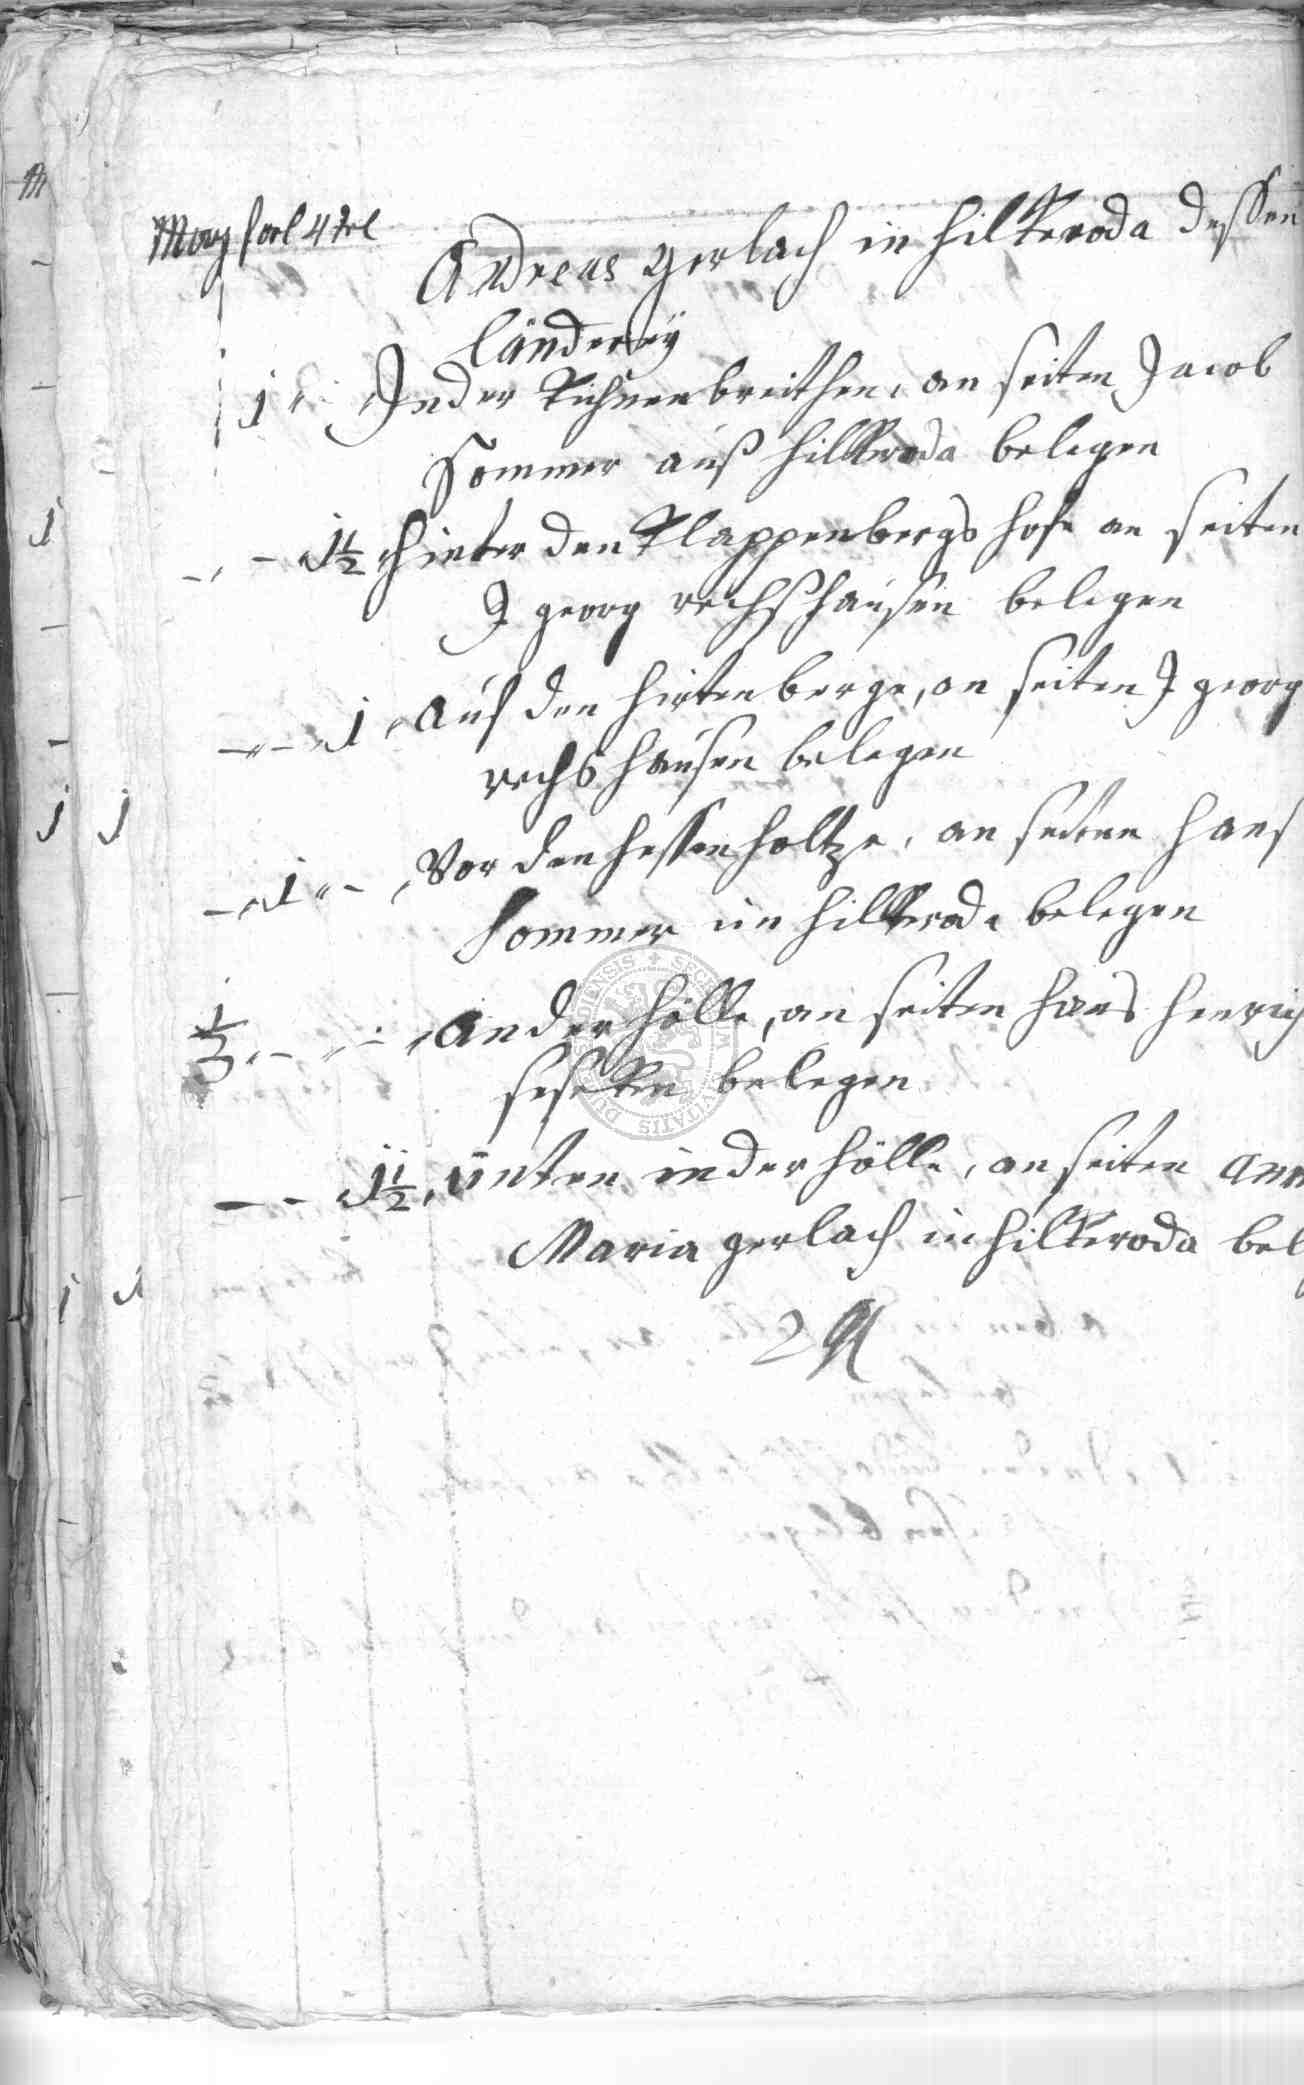 Morg forl 4tel
Andreas gerlach in hilkeroda dessen
länderey
1 In der Kuhnenbreithen, an seiten Jacob
Sommer auß hilkeroda belegen
1½ hinter den Klappenbergs hofe an seiten
J georg rechshausen belegen
1 auf den hirtenberge, an seiten J georg
rechshausen belegen
1 Vor den hessenholtze, an seiten hans
Sommer in hilkeroda belegen
an der hölle, an seiten hans henrich
belegen
1½ unten in der hölle, an seiten
Maria gerlach in hilkeroda